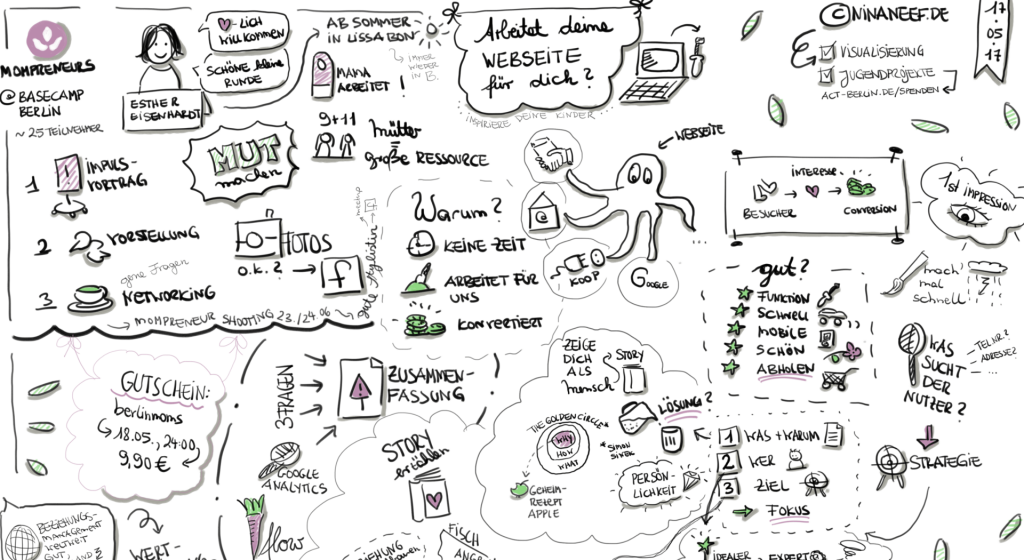 MOMPRENEURS
@BASECAMP
BERLIN
~ 25 TEILNEHMER
LICH
WILLKOMMEN
SCHÖNE kleine
RUNDE
ESTHER
EISENHARDT
1 IMPULS-
VORTRAG
2 VORSTELLUNG
gerne Fragen
3 NETWORKING
→ MOMPRENEUR SHOOTING 23./24.06
MUT
machen
FOTOS
O.K.? → f
AB SOMMER
IN LISSABON
IMMER
WIEDER
IN B.
MAMA
ARBEITET!
9+11
Mütter
=
große RESSOURCE
Arbeitet deine
WEBSEITE
für dich?
INSPIRIERE DEINE KINDER
© NINANEEF.DE
VISUALISIERUNG
JUGENDPROJEKTE
ACT-BERLIN.DE/SPENDEN
17
05
17
WEBSEITE
KOOP
GOOGLE
...
Warum?
KEINE ZEIT
ARBEITET FÜR
UNS
KONVERTIERT
INTERESSE
BESUCHER
CONVERSION
1ST IMPRESSION
mach
mal
schnell
gut?
FUNKTION
SCHNELL
MOBILE
SCHÖN
ABHOLEN
WAS
SUCHT
DER
NUTZER?
TEL.NR?
ADRESSE?
...
STRATEGIE
GUTSCHEIN:
berlinmoms
18.05., 24:00
9,90 €
3 FRAGEN
ZUSAMMEN-
FASSUNG
GOOGLE
ANALYTICS
STORY
erzählen
flow
ZEIGE
DICH
ALS
Mensch
STORY
THE GOLDEN CIRCLE*
WHY
HOW
WHAT
* SIMON
SINEK
GEHEIM-
REZEPT
APPLE
LÖSUNG?
PERSÖN-
LICHKEIT
1 WAS + WARUM
2 WER
3 ZIEL
→ FOKUS
IDEALER
EXPERT
BEZIEHUNGS-
MANAGEMENT
WERT-
FISCH